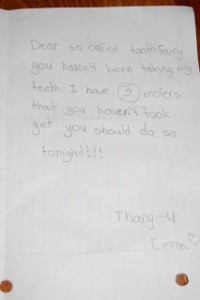 Dear so called toothfairy
you haven't been taking my
teeth. I have 3 molers
that you haven't took
yet you should do so
tonight!!!
Thany-U
Emma ♡